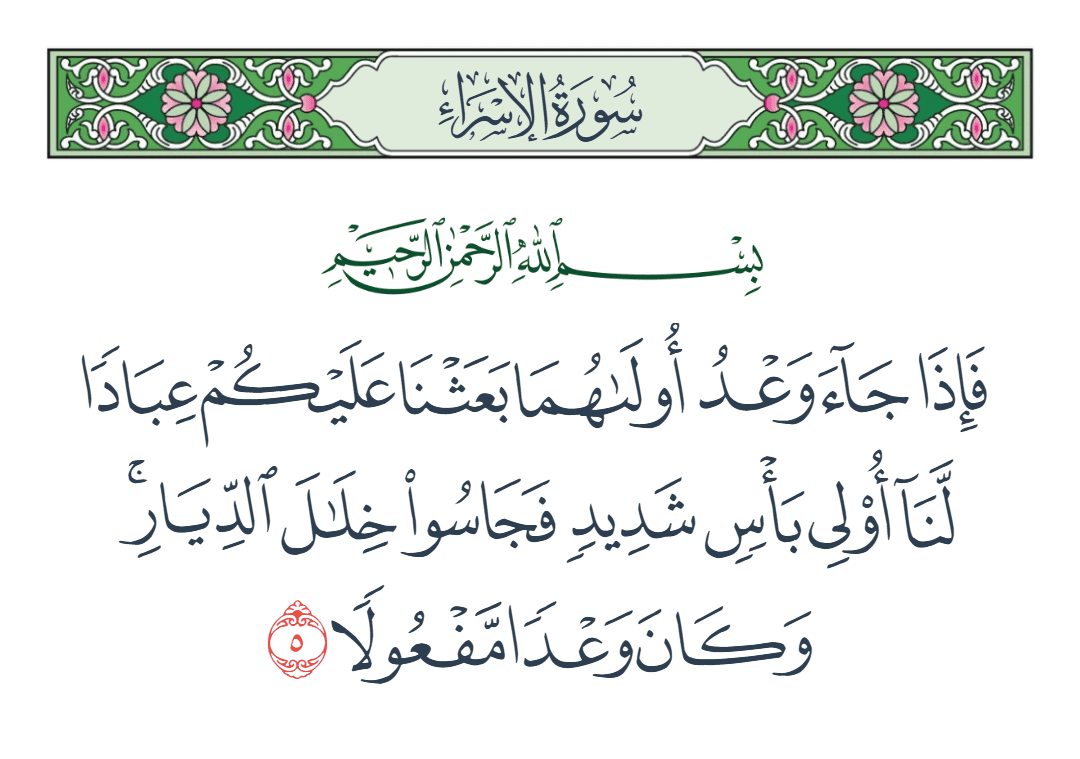 سُورَةُ الإِسْرَاءِ
بِسْمِ ٱللَّهِ ٱلرَّحْمَٰنِ ٱلرَّحِيمِ
فَإِذَا جَآءَ وَعْدُ أُولَىٰهُمَا بَعَثْنَا عَلَيْكُمْ عِبَادًا
لَّنَآ أُو۟لِى بَأْسٍ شَدِيدٍ فَجَاسُوا۟ خِلَـٰلَ ٱلدِّيَارِ ۚ
وَكَانَ وَعْدًا مَّفْعُولًا ٥